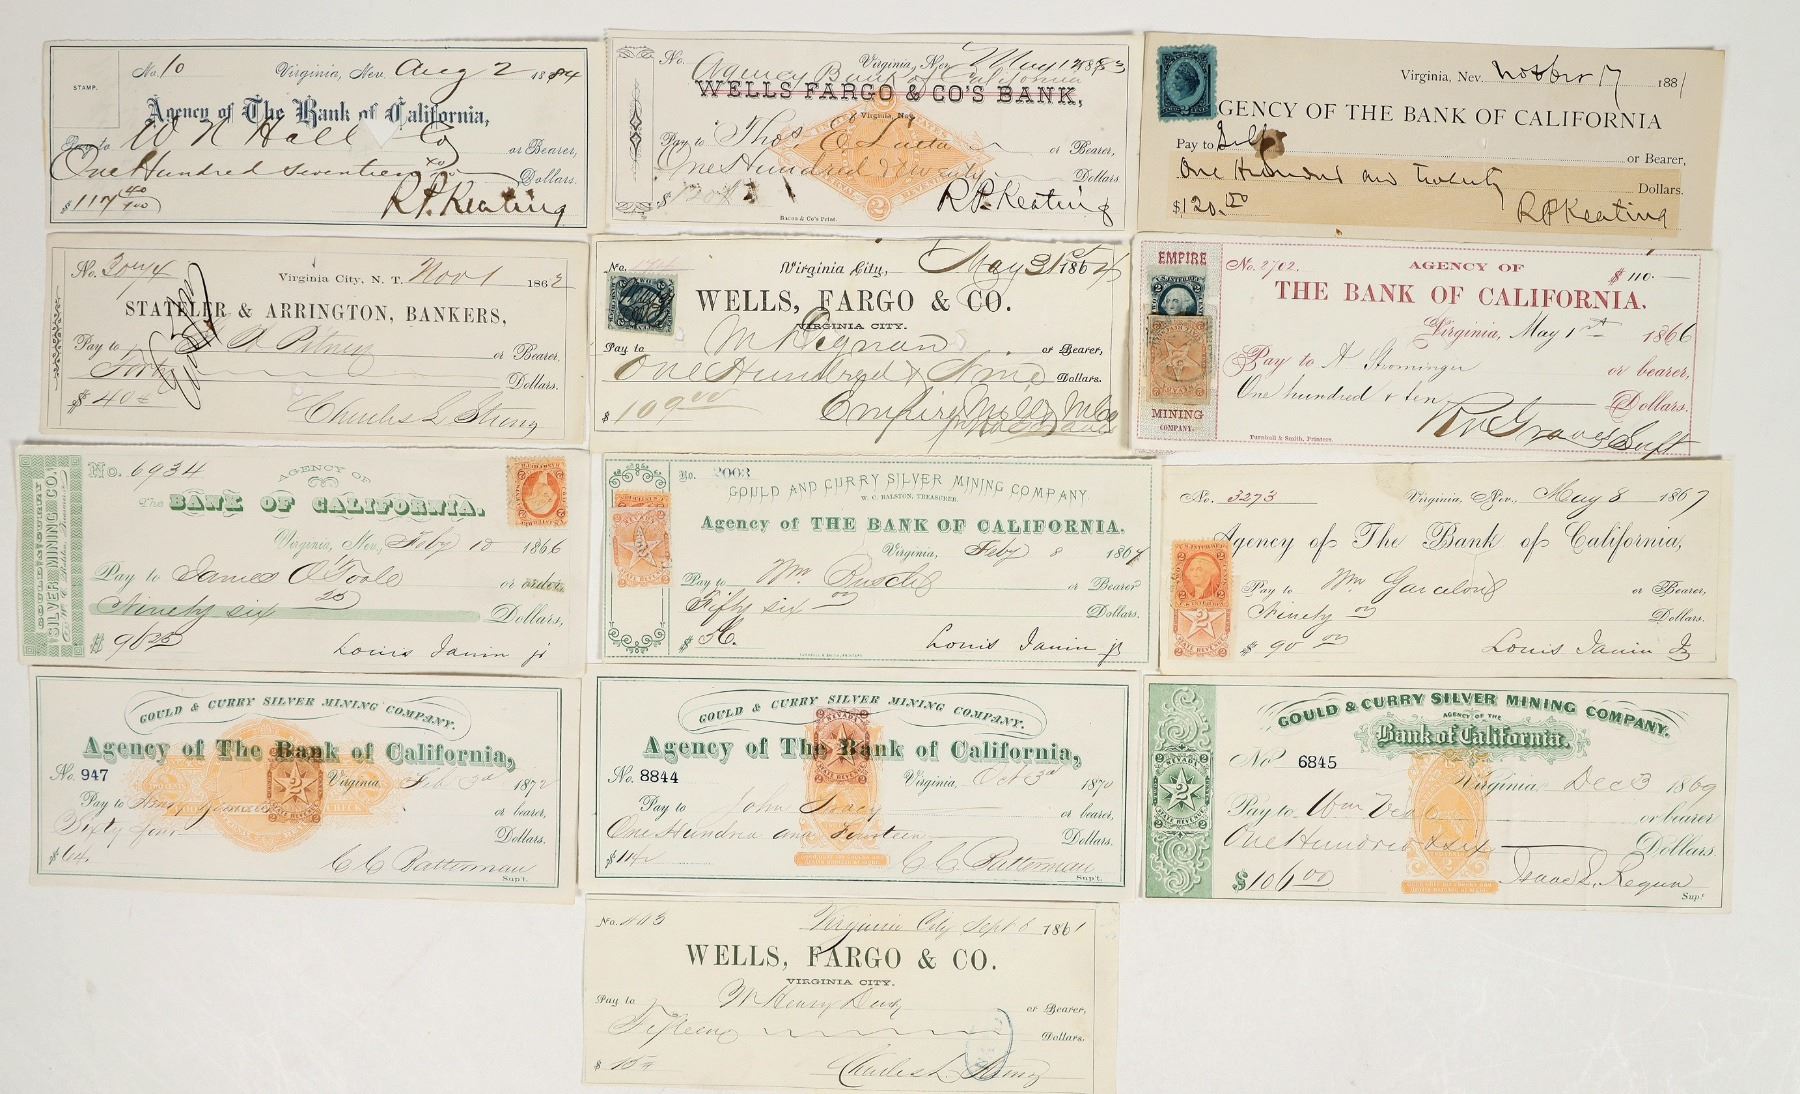 STAMP.
No. 10 Virginia, Nev. Aug 2 1884
Agency of The Bank of California,
Pay to W N Hall Co or Bearer,
One Hundred seventeen 40/100 Dollars.
$117 40/100 R.P. Keating
No. Virginia, Nev. May 12 1883
Agency Bank of California
WELLS FARGO & CO'S BANK,
Virginia, Nev.
Pay to Thos. E. or Bearer,
One Hundred & twenty Dollars.
$120 R.P. Keating
Bacon & Co's Print.
Virginia, Nev. 17 1881
AGENCY OF THE BANK OF CALIFORNIA
Pay to Self or Bearer,
One Hundred and twenty Dollars.
$120. R P Keating
No. Virginia City, N. T. Nov 1 1862
STATELER & ARRINGTON, BANKERS,
Pay to or Bearer,
Forty Dollars.
$40 Charles L Strong
No. Virginia City, May 31st 1864
WELLS, FARGO & CO.
VIRGINIA CITY.
Pay to or Bearer,
One Hundred & Nine Dollars.
$109.00 Empire M & M Co
EMPIRE
MINING
COMPANY.
No. 2702. AGENCY OF $110.
THE BANK OF CALIFORNIA.
Virginia, May 1st 1866
Pay to A Strominger or bearer,
One hundred & ten Dollars.
Turnbull & Smith, Printers. Graves Supt
GOULD & CURRY
SILVER MINING CO.
No. 6934 AGENCY OF
The BANK OF CALIFORNIA.
Virginia, Nev., Feby 10 1866
Pay to James O'Toole or order
Ninety six 25 Dollars,
$96 25 Louis Janin jr
No. 2003
GOULD AND CURRY SILVER MINING COMPANY.
W. C. RALSTON, TREASURER.
Agency of THE BANK OF CALIFORNIA.
Virginia, Feby 8 1867
Pay to Wm or Bearer
Fifty six Dollars.
$56. Louis Janin jr
No. 3273 Virginia, Nev., May 8 1867
Agency of The Bank of California,
Pay to Wm Garcelon or Bearer,
Ninety Dollars.
$90 00 Louis Janin Jr
GOULD & CURRY SILVER MINING COMPANY.
Agency of The Bank of California,
No. 947 Virginia, Feb 3d 1872
Pay to or bearer,
Sixty four Dollars.
$64 C C Batterman
Sup't.
GOULD & CURRY SILVER MINING COMPANY.
Agency of The Bank of California,
No. 8844 Virginia, Oct 3d 1870
Pay to John Tracy or bearer,
One Hundred and fourteen Dollars.
$114 C. C. Batterman
Sup't.
GOULD & CURRY SILVER MINING COMPANY.
AGENCY OF THE
Bank of California.
No 6845 Virginia, Dec 3 1869
Pay to Wm Veal or bearer
One Hundred & six Dollars.
$106.00 Isaac L. Requa
Sup't
No. 403 Virginia City Sept 6 1861
WELLS, FARGO & CO.
VIRGINIA CITY.
Pay to or Bearer,
Fifteen Dollars.
$15 Charles L. Strong